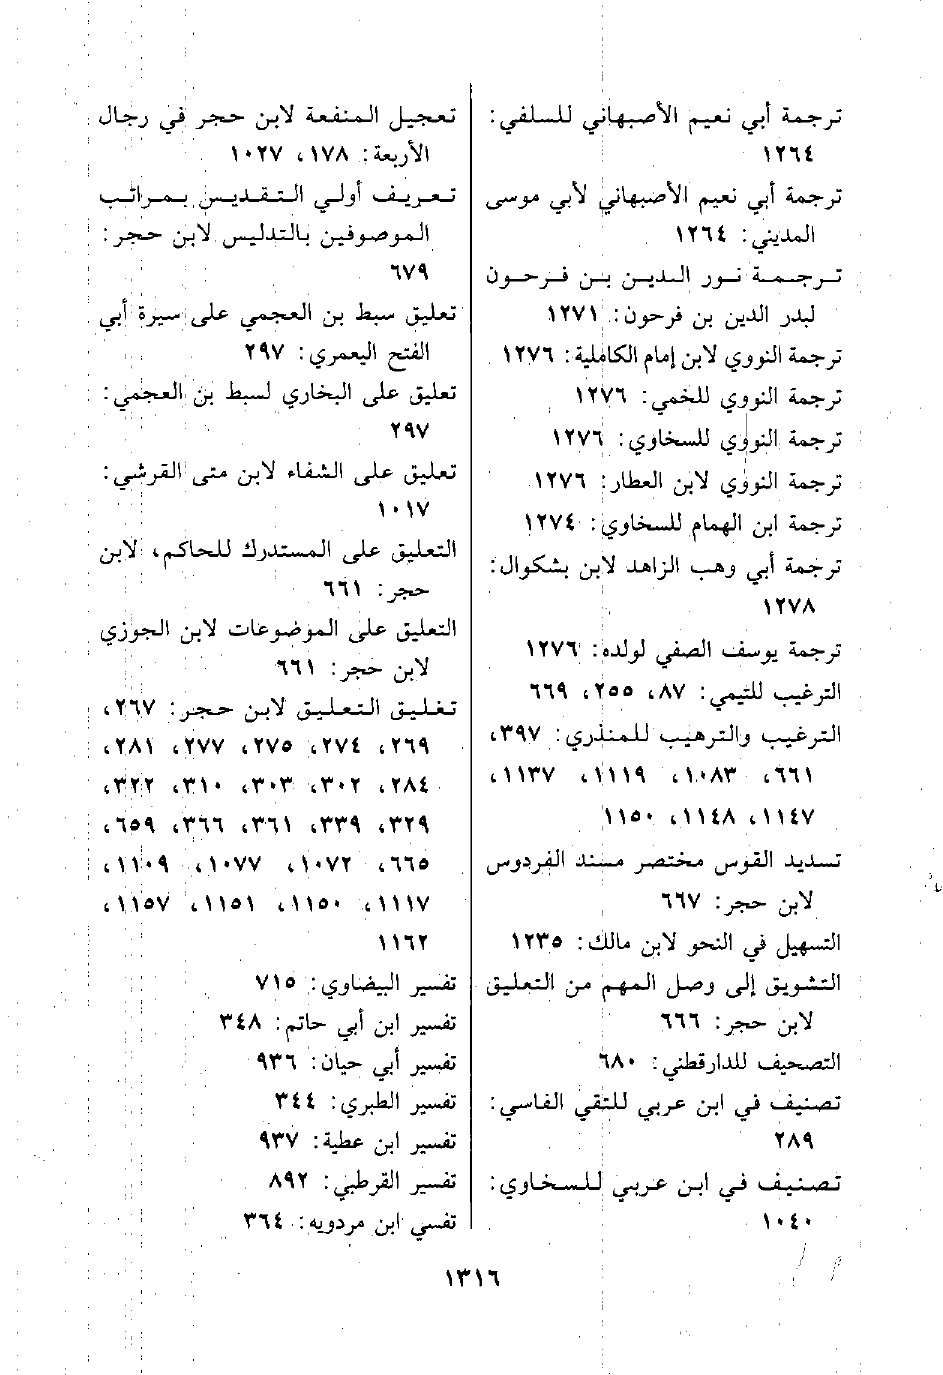 ترجمة أبي نعيم الأصبهاني للسلفي:
١٢٦٤
ترجمة أبي نعيم الأصبهاني لأبي موسى
المديني: ١٢٦٤
ترجمة نور الدين بن فرحون
لبدر الدين بن فرحون: ١٢٧١
ترجمة النووي لابن إمام الكاملية: ١٢٧٦
ترجمة النووي للخمي: ١٢٧٦
ترجمة النووي للسخاوي: ١٢٧٦
ترجمة النووي لابن العطار: ١٢٧٦
ترجمة ابن الهمام للسخاوي: ١٢٧٤
ترجمة أبي وهب الزاهد لابن بشكوال:
١٢٧٨
ترجمة يوسف الصفي لولده: ١٢٧٦
الترغيب للتيمي: ٨٧، ٢٥٥، ٦٦٩
الترغيب والترهيب للمنذري: ٣٩٧،
٦٦١، ١٠٨٣، ١١١٩، ١١٣٧،
١١٤٧، ١١٤٨، ١١٥٠
تسديد القوس مختصر مسند الفردوس
لابن حجر: ٦٦٧
التسهيل في النحو لابن مالك: ١٢٣٥
التشويق إلى وصل المهم من التعليق
لابن حجر: ٦٦٦
التصحيف للدارقطني: ٦٨٠
تصنيف في ابن عربي للتقي الفاسي:
٢٨٩
تصنيف في ابن عربي للسخاوي:
١٠٤٠
تعجيل المنفعة لابن حجر في رجال
الأربعة: ١٧٨، ١٠٢٧
تعريف أولي التقديس بمراتب
الموصوفين بالتدليس لابن حجر:
٦٧٩
تعليق سبط بن العجمي على سيرة أبي
الفتح اليعمري: ٢٩٧
تعليق على البخاري لسبط بن العجمي:
٢٩٧
تعليق على الشفاء لابن متى القرشي:
١٠١٧
التعليق على المستدرك للحاكم، لابن
حجر: ٦٦١
التعليق على الموضوعات لابن الجوزي
لابن حجر: ٦٦١
تغليق التعليق لابن حجر: ٢٦٧،
٢٦٩، ٢٧٤، ٢٧٥، ٢٧٧، ٢٨١،
٢٨٤، ٣٠٢، ٣٠٣، ٣١٠، ٣٢٢،
٣٢٩، ٣٣٩، ٣٦١، ٣٦٦، ٦٥٩،
٦٦٥، ١٠٧٢، ١٠٧٧، ١١٠٩،
١١١٧، ١١٥٠، ١١٥١، ١١٥٧،
١١٦٢
تفسير البيضاوي: ٧١٥
تفسير ابن أبي حاتم: ٣٤٨
تفسير أبي حيان: ٩٣٦
تفسير الطبري: ٣٤٤
تفسير ابن عطية: ٩٣٧
تفسير القرطبي: ٨٩٢
تفسي ابن مردويه: ٣٦٤
١٣١٦